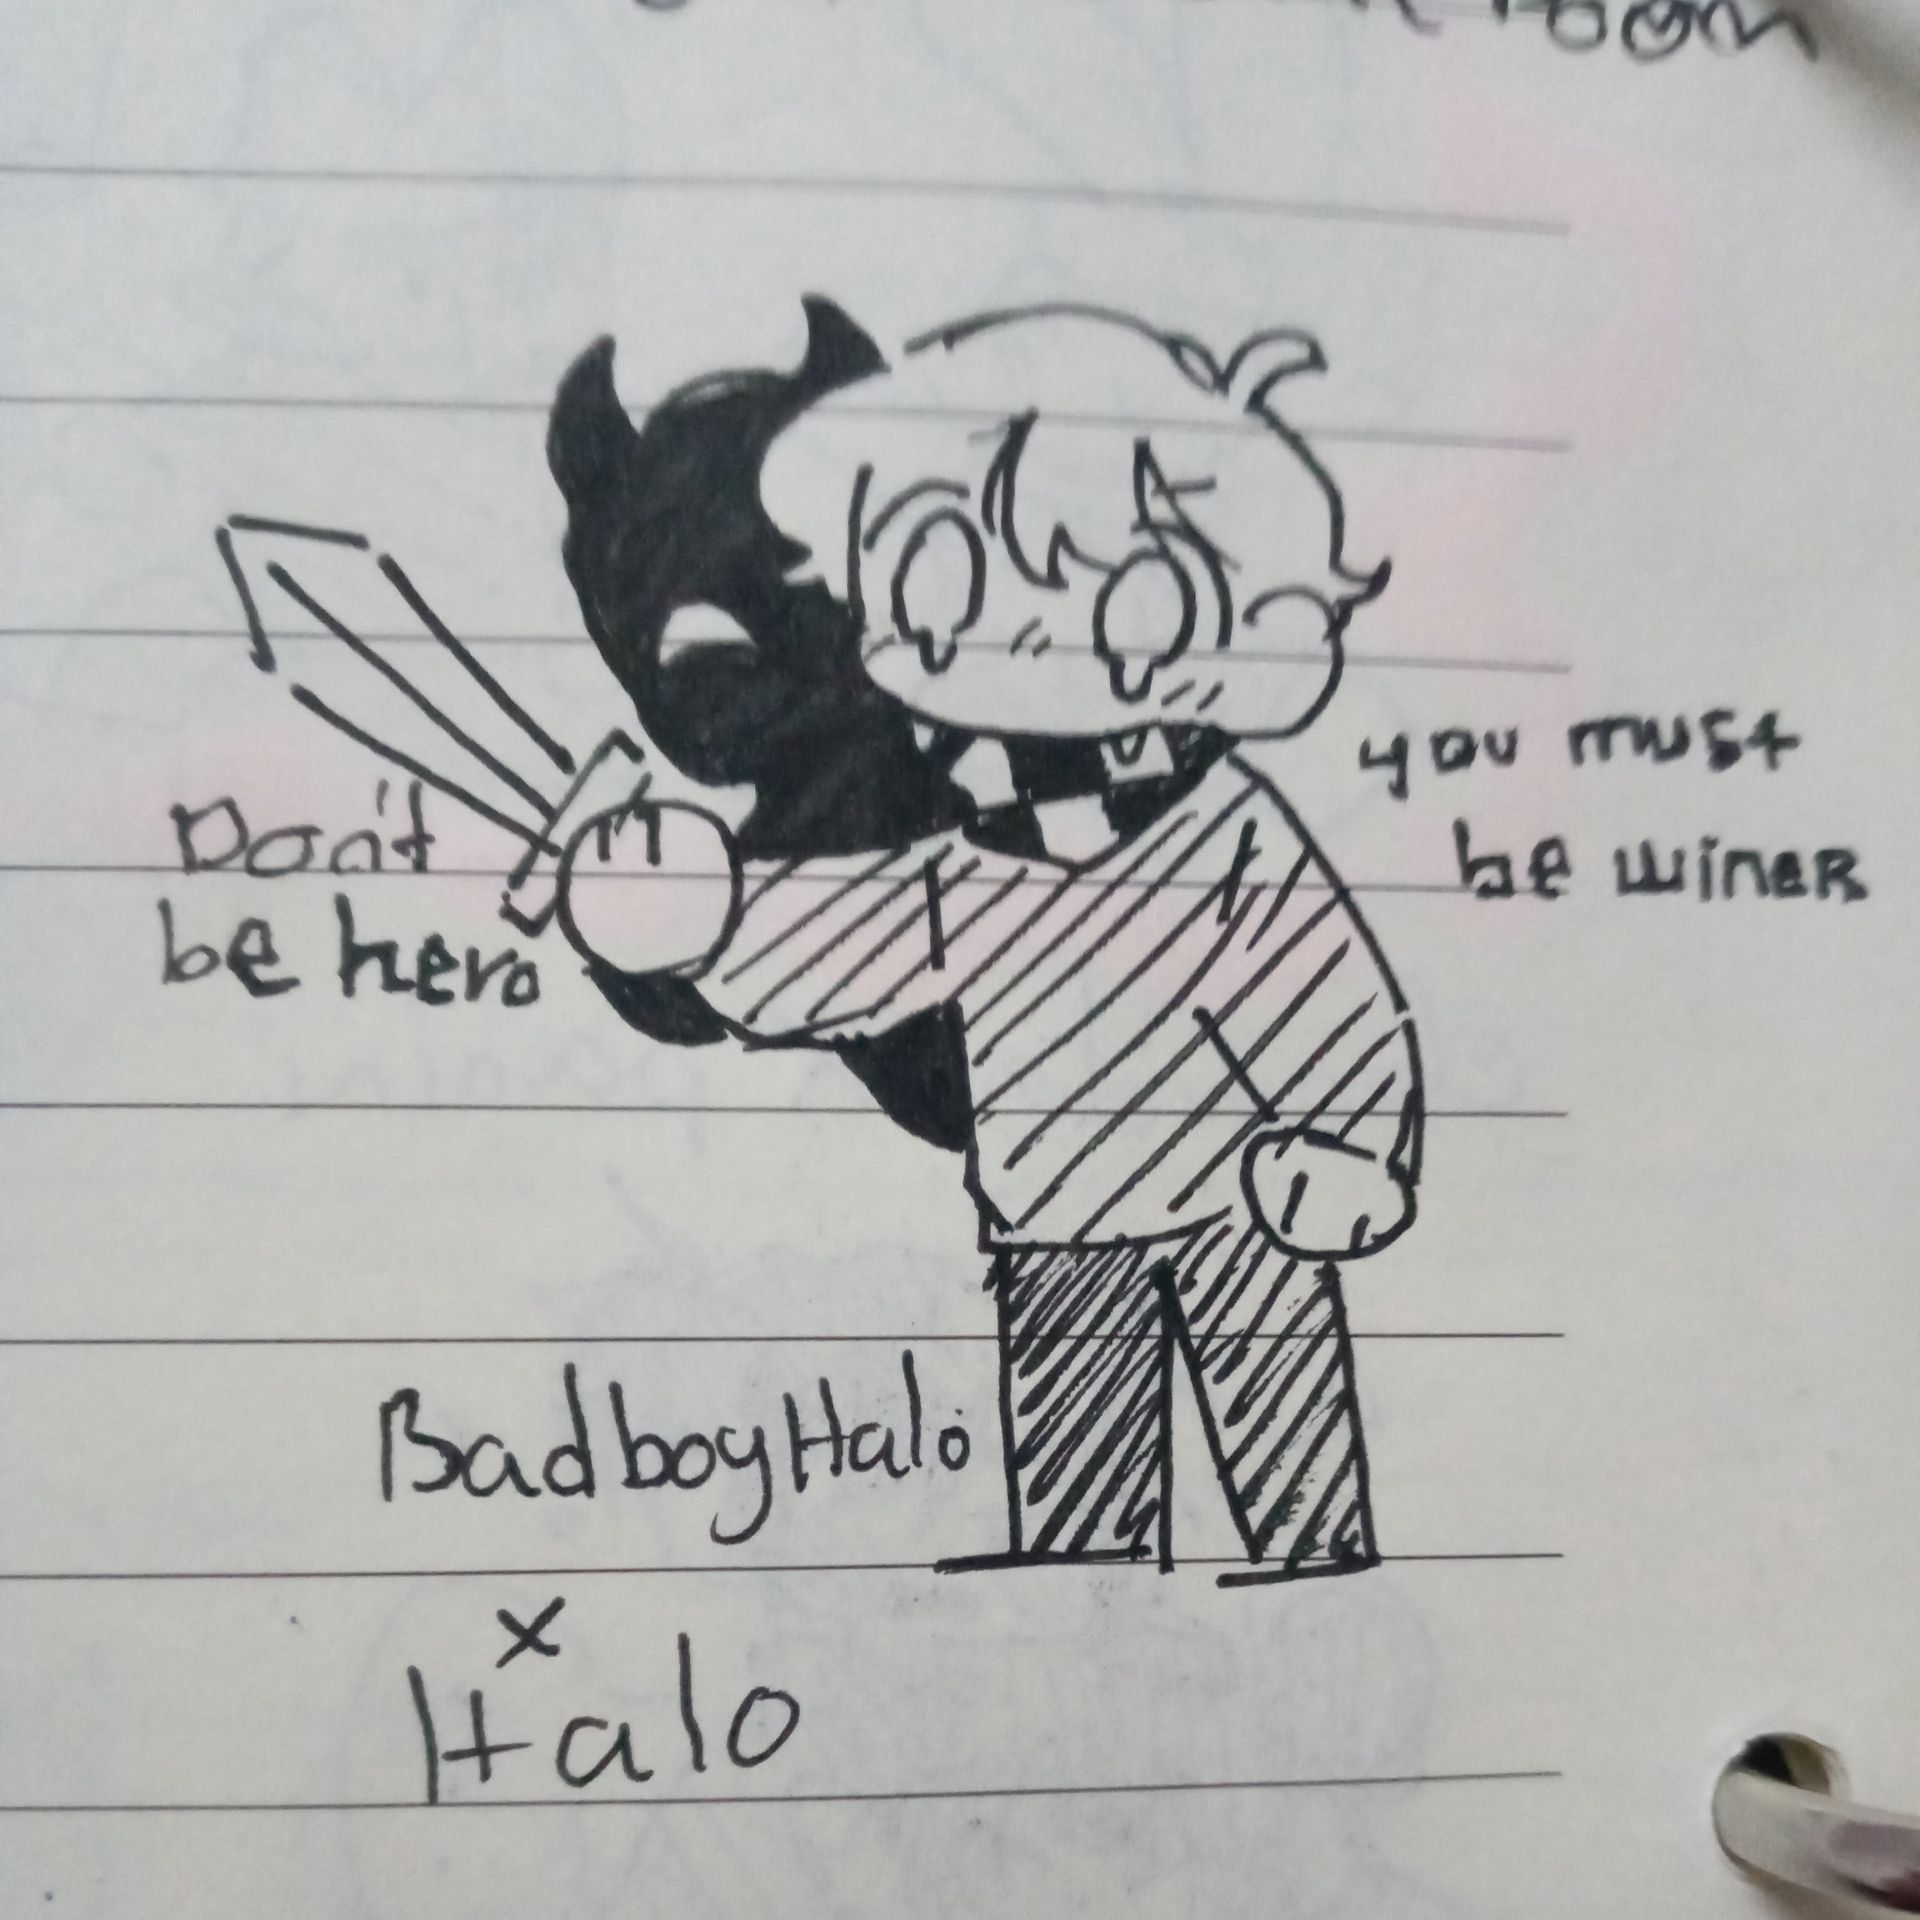 room
Don't
be hero
you must
be winer
BadboyHalo
x
Halo